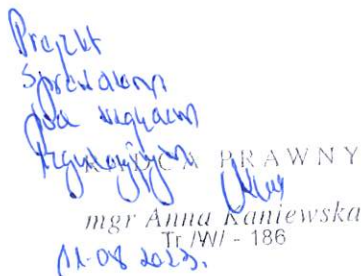 Projekt
Sprawdzony
pod względem
RADCA PRAWNY
mgr Anna Kaniewska
Tr /W/ - 186
11-08 2023.